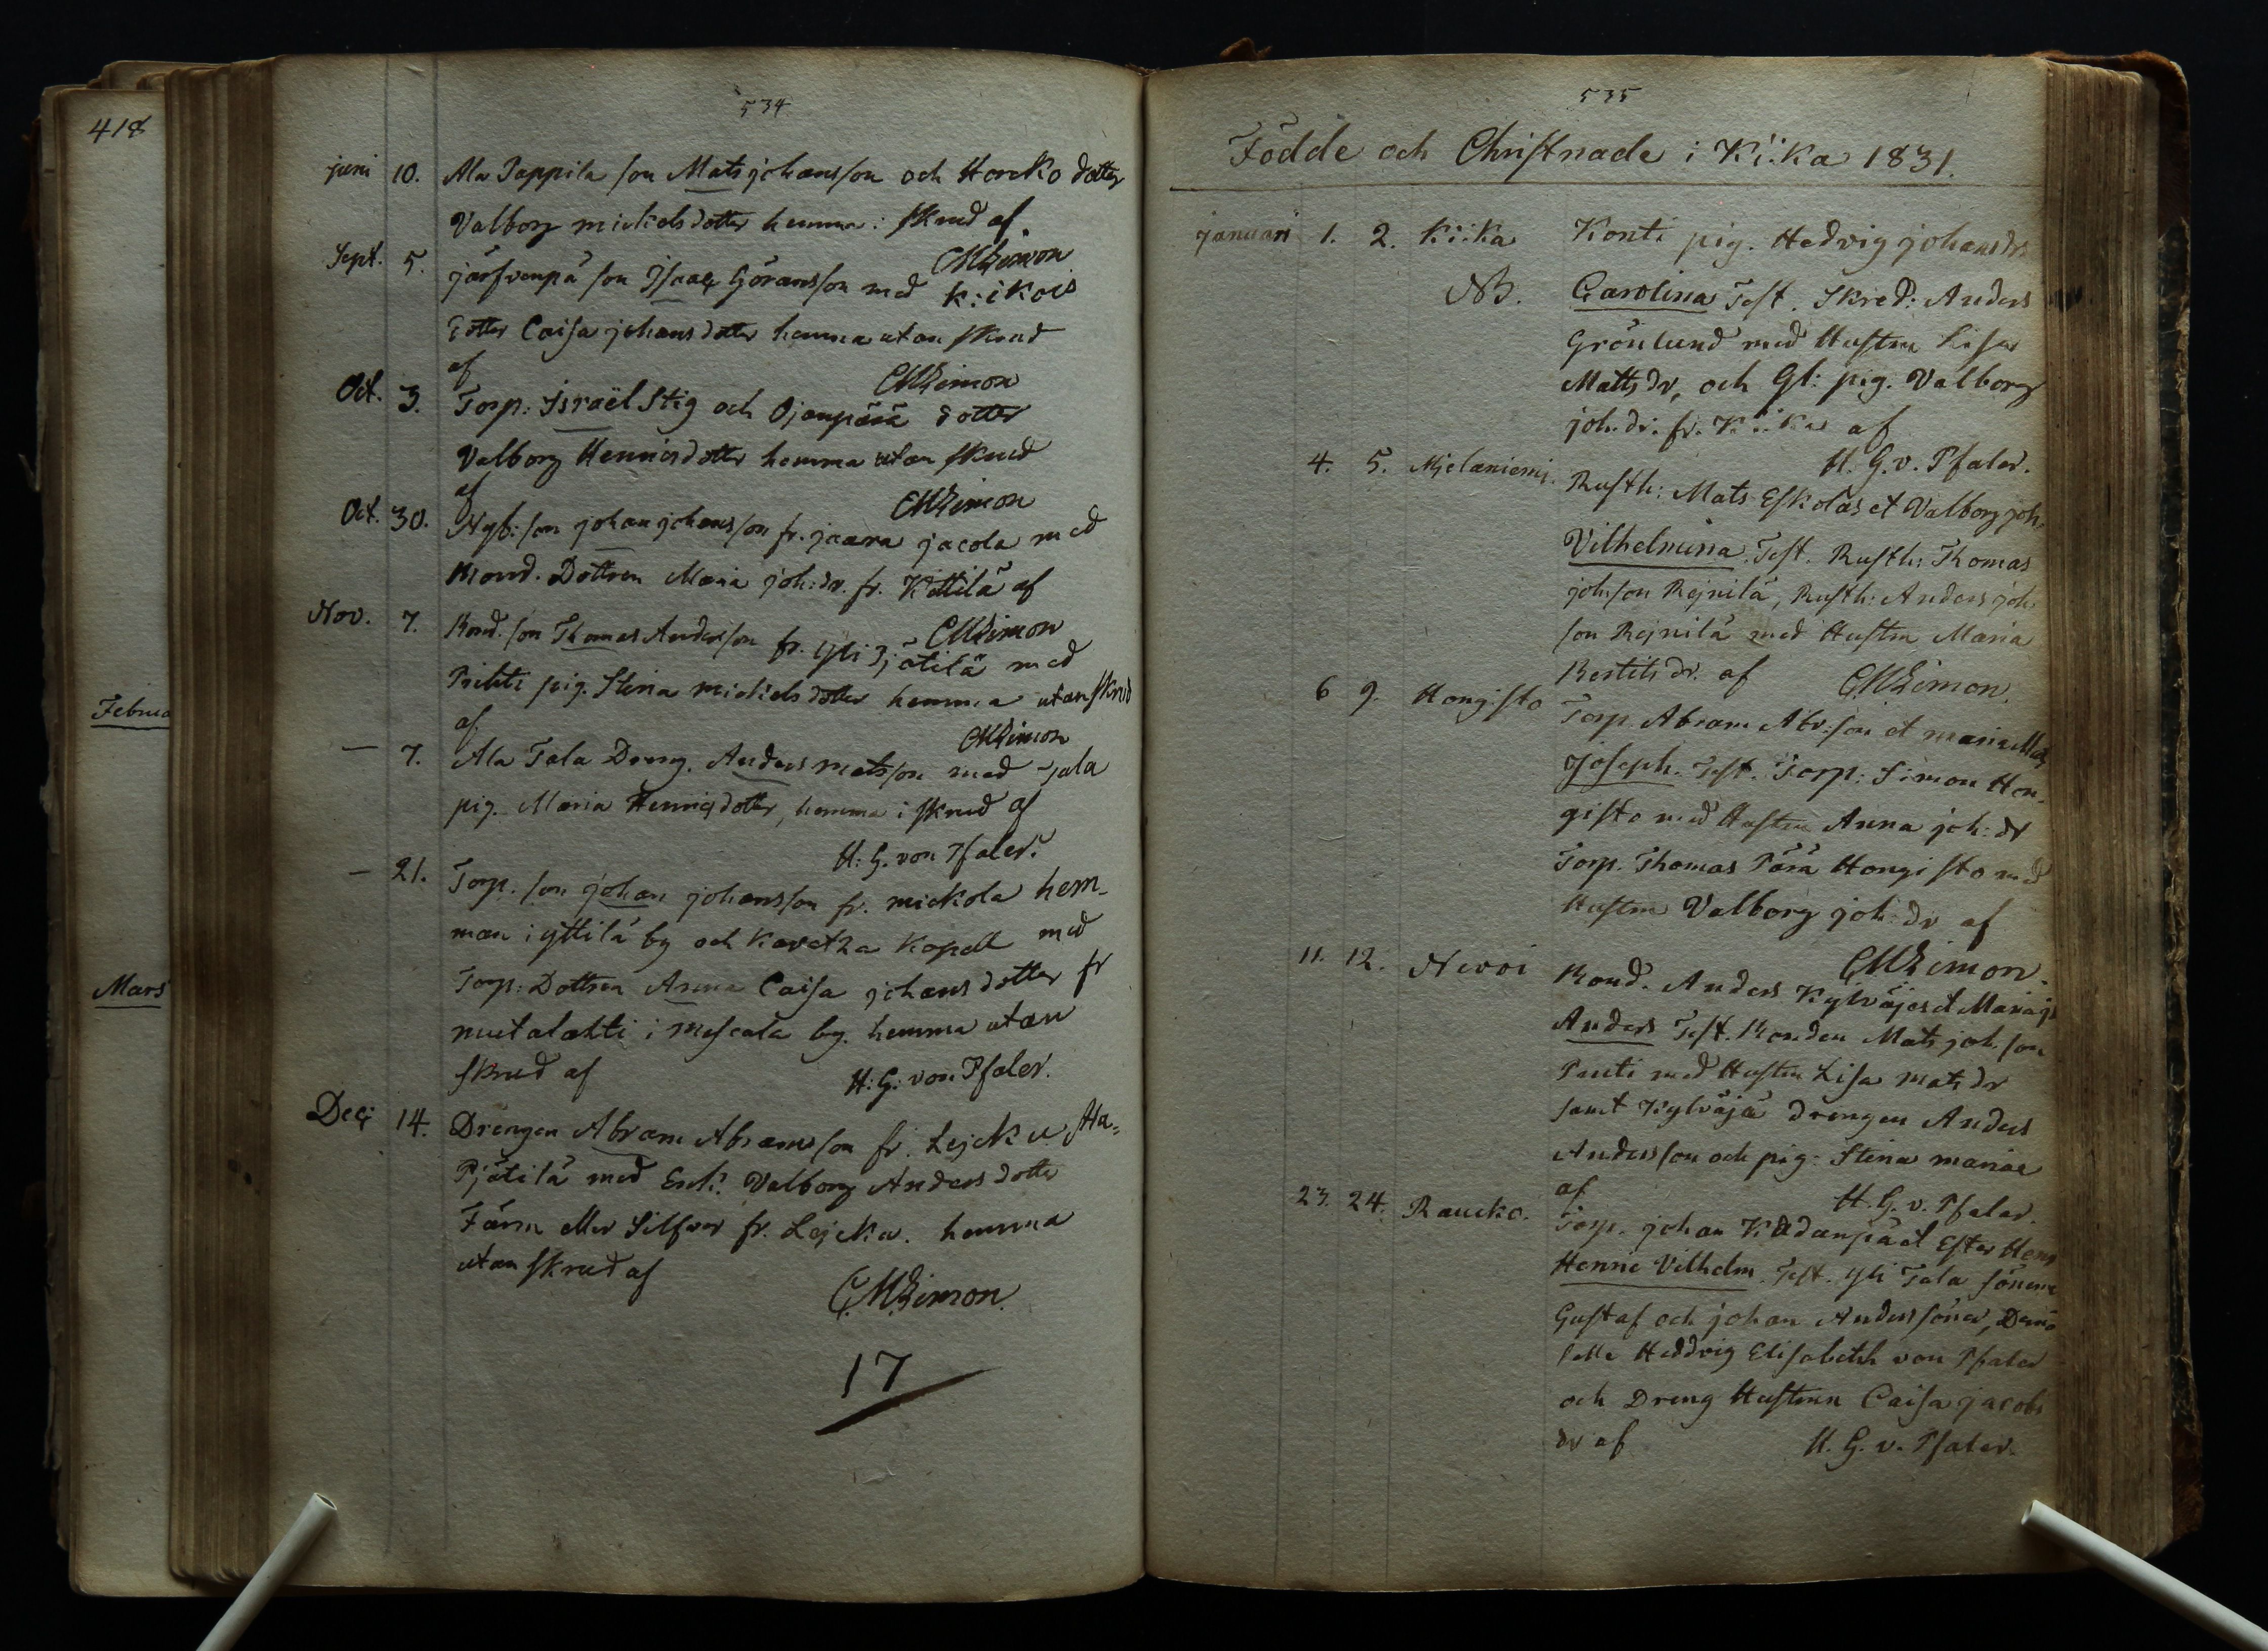 418
Februa
Mars
534
juni 10. Ala Pappila son Mats johansson och Horcko dotter
Valborg mickelsdotter hemma i skrud af
CMZimon
Sept. 5. järfvenpä son Isaac Göransson med K:ikois
dotter Caisa johansdotter hemma utan skrud
af CMZimon
Oct. 3. Torp: Israël Stig och Ojanpää dotter
Valborg Henricsdotter hemma utan skrud
af CMZimon
Oct. 30. Nyb: son johan johansson fr. jaara jacola med
Bond. Dottren Maria joh:dr. fr. Kittilä af
CMZimon
Nov. 7. Bond. son Thomas Andersson fr. Yli Pjätilä med
Prihti pig. Stina mickelsdotter hemma utan skrud
af CMZimon
— 7. Ala Tala Dreng. Anders matsson med jala
pig. Maria Henricsdotter, hemma i skrud af
H: G. von Pfaler.
— 21. Torp. son johan johansson fr. mickola hem-
man i yttilä by och Kavatza Kapell med
Torp: Dottren Anna Caisa johansdotter fr
mutalahti i mescala by. hemma utan
skrud af H: G: von Pfaler.
Dec: 14. Drengen Abram Abramsson fr. Lejcku Ala-
Pjätilä med Enk: Valborg Andersdotter
Färm eller Silfver fr. Lejcku. hemma
utan skrud af
C.M.Zimon.
17
535
Födde och Christnade i Ki:Ka 1831.
januari 1. 2. Ki:Ka Konti pig. Hedvig johansdr
NB. Carolina Test. Skred: Anders
Grönlund med Hustru Lisa
Matts dr, och Gl: pig. Valborg
joh. dr. fr. Ki:Ka af
H. G. v. Pfaler.
4. 5. Mjelaniemi. Rusth: Mats Eskolas et Valborg joh:
Vilhelmina. Test. Rusth: Thomas
joh:son Rejnilä, Rusth: Anders joh
son Rejnilä med Hustru Maria
Bertils dr. af CMZimon.
6 9. Hongisto Torp. Abram Abr:son et maria Mats
Joseph. Test. Torp: Simon Hon-
gisto med Hustru Anna joh: dr
Torp. Thomas Pärä Hongisto med
Hustru Valborg joh: dr af
CMZimon.
11. 12. Nivoi Bond. Anders Kylväjes et Maria js
Anders Test. Bonden Mats joh. son
Penti med Hustru Lisa mats dr
samt Kylväjä drengen Anders
Andersson och pig: Stina maria
af H. G. v. Pfaler.
23. 24. Raucko. Torp. johan Kadanpää et Ester Henr
Henric Vilhelm. Test. Yli Tala sönerne
Gustaf och johan Anderssöner, Demo
selle Heddvig Elisabeth von Pfaler
och Dreng Hustrun Caisa jacobs
dr af H. G. v. Pfaler.